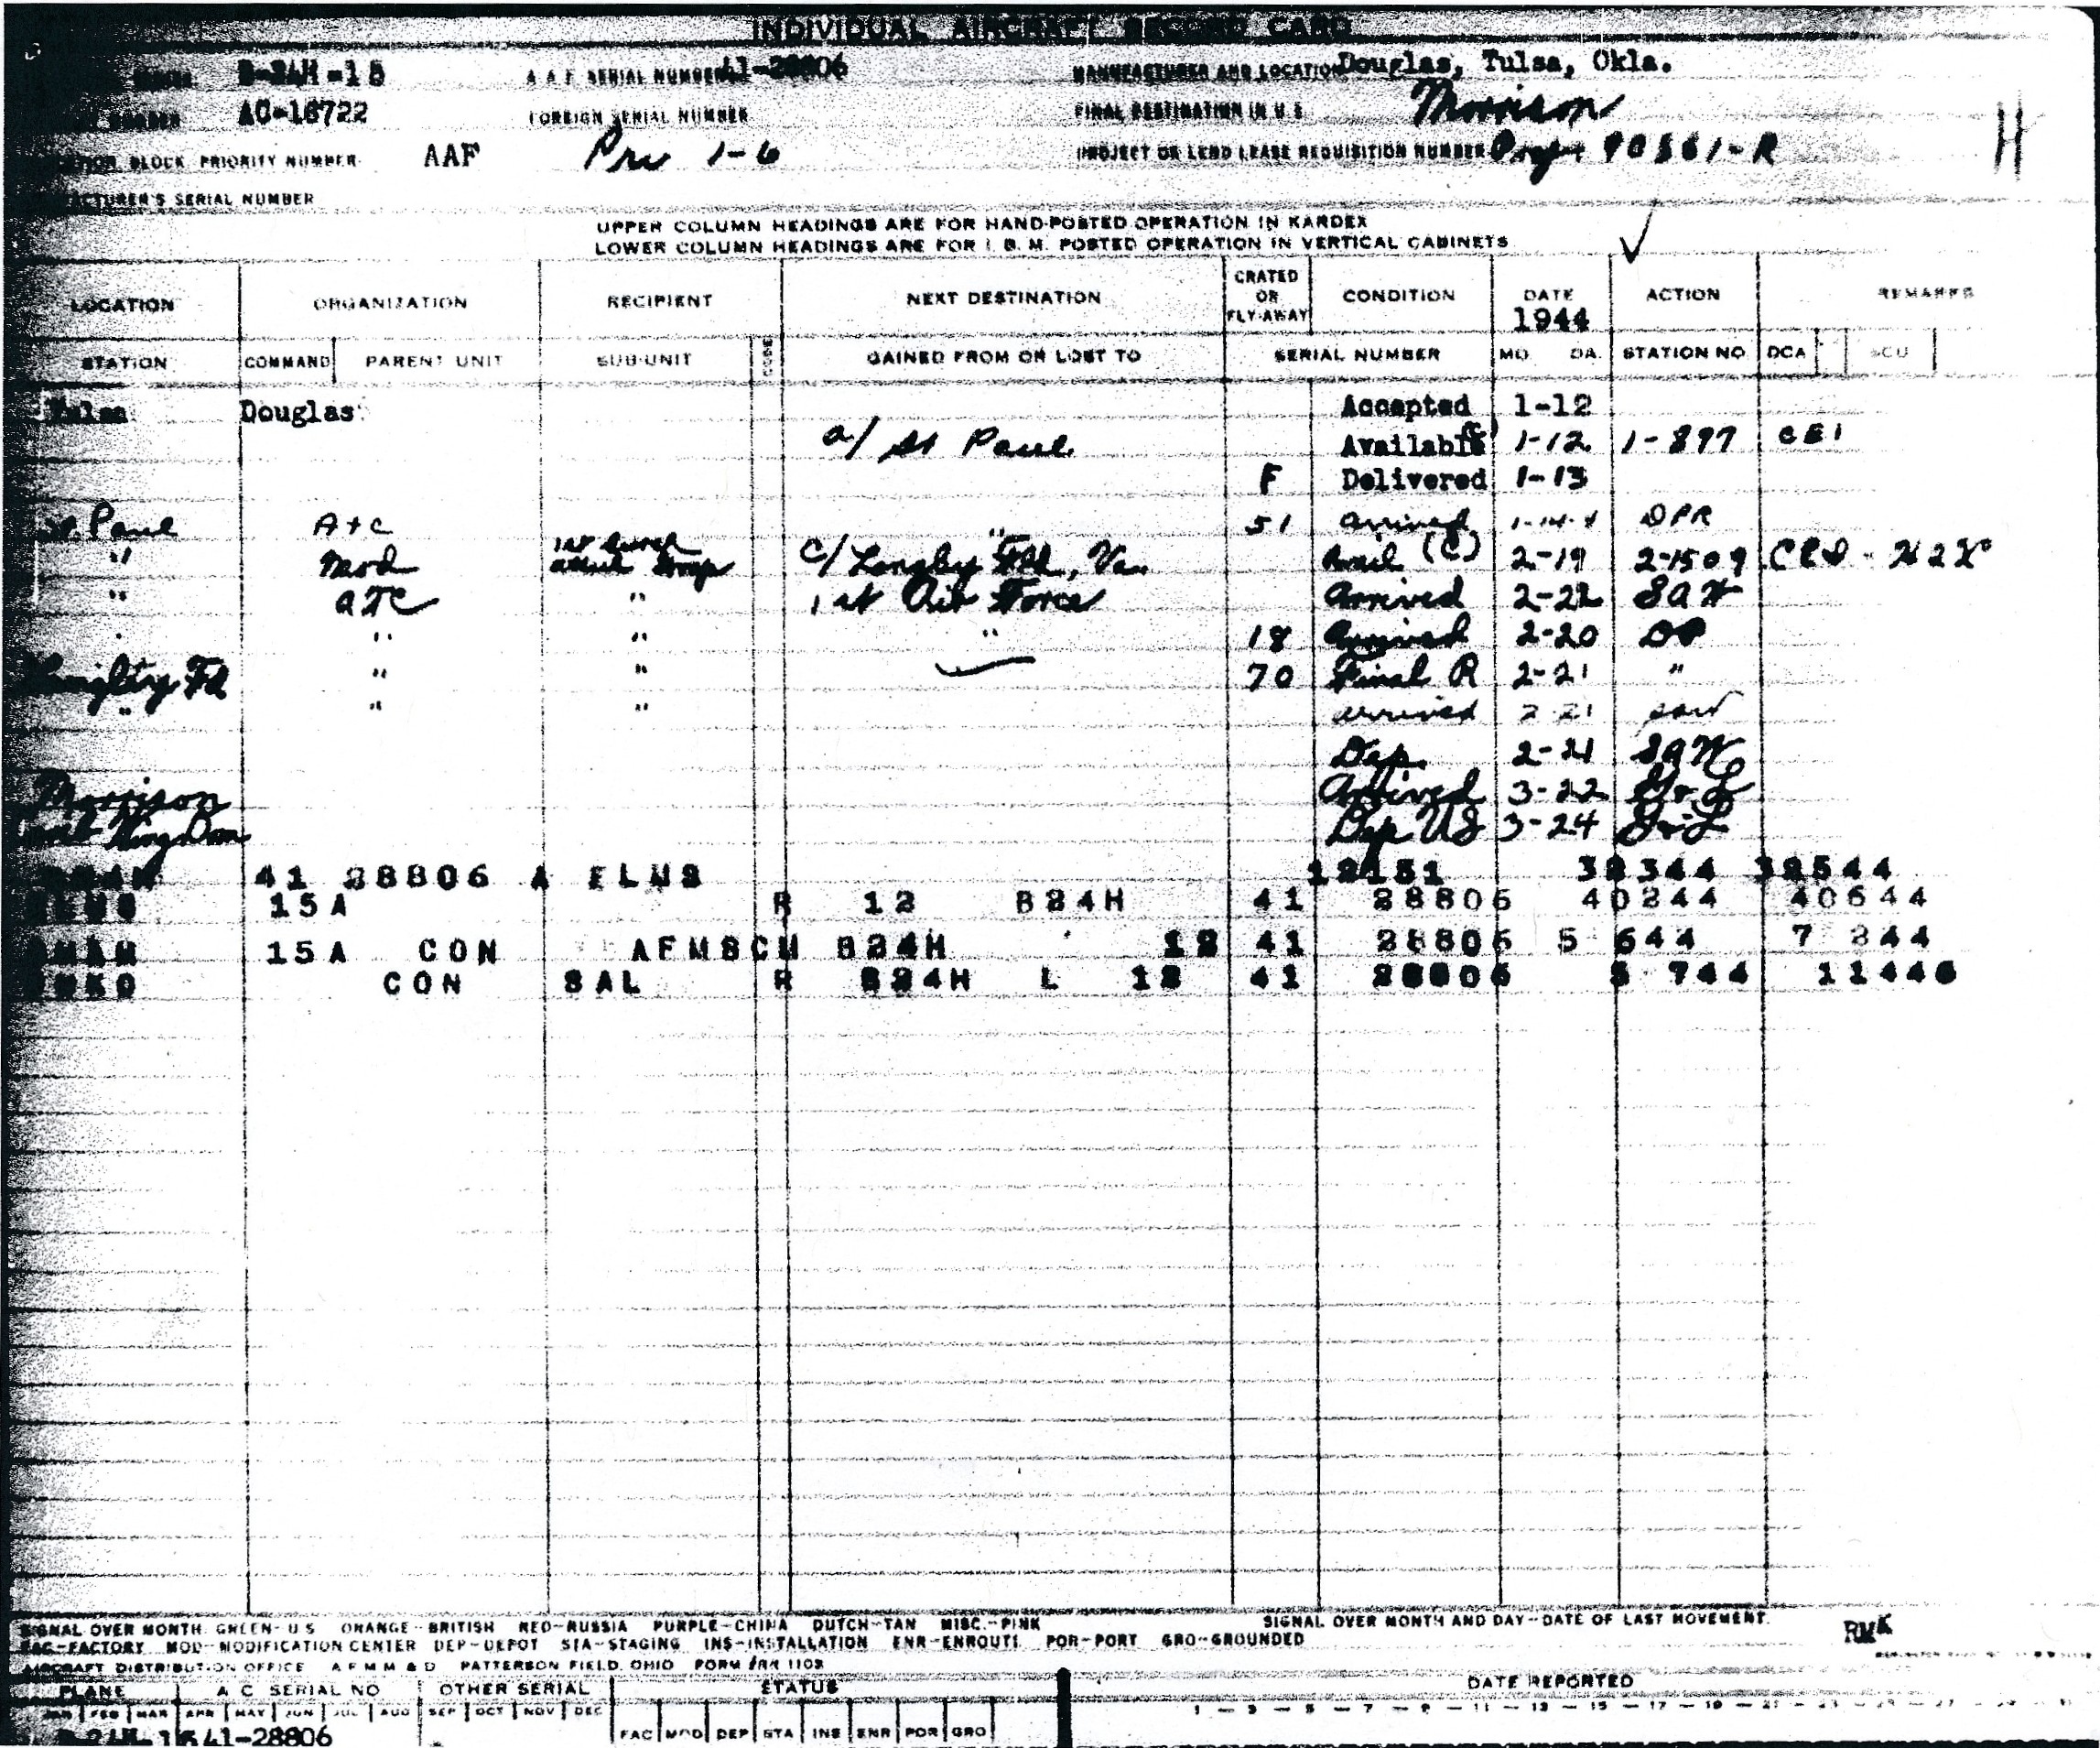 INDIVIDUAL AIRCRAFT RECORD CARD
B-24H-15 A.A.F. SERIAL NUMBER 41-28806 MANUFACTURER AND LOCATION Douglas, Tulsa, Okla.
AC-16722 FOREIGN SERIAL NUMBER FINAL DESTINATION IN U.S. Morrison
BLOCK PRIORITY NUMBER AAF Prv 1-6 PROJECT OR LEND LEASE REQUISITION NUMBER Proj 90561-R H
SERIAL NUMBER
UPPER COLUMN HEADINGS ARE FOR HAND-POSTED OPERATION IN KARDEX
LOWER COLUMN HEADINGS ARE FOR I.B.M. POSTED OPERATION IN VERTICAL CABINETS
LOCATION ORGANIZATION RECIPIENT NEXT DESTINATION CRATED OR FLY-AWAY CONDITION DATE 1944 ACTION REMARKS
STATION COMMAND PARENT UNIT SUB-UNIT CODE GAINED FROM OR LOST TO SERIAL NUMBER MO. DA. STATION NO. DCA SCU
Tulsa Douglas Accepted 1-12
a/ St Paul Available 1-12 1-897 CEI
F Delivered 1-13
St. Paul A+C " 51 Arrived DPR
" Mod C/ Langley Fld, Va. Avail (C) 2-19 2-1509
" ATC " 1st Air Force Arrived 2-22 SAW
" " " " 18 Arrived 2-20 DP
Langley Fd " " 70 Final R 2-21 "
" " " arrived 2-21 SAW
Dep. SAW
Morrison Arrived 3-22
Dep US 3-24
41 28806 A 32344 32544
15A R 12 B24H 41 28806 40244 40644
15A CON B24H 12 41 28806 5 644 7 244
CON SAL R B24H L 12 41 28806 744 11446
SIGNAL OVER MONTH GREEN-U.S. ORANGE-BRITISH RED-RUSSIA PURPLE-CHINA DUTCH-TAN MISC.-PINK SIGNAL OVER MONTH AND DAY-DATE OF LAST MOVEMENT.
FAC-FACTORY MOD-MODIFICATION CENTER DEP-DEPOT STA-STAGING INS-INSTALLATION ENR-ENROUTE POR-PORT GRO-GROUNDED RMK
AIRCRAFT DISTRIBUTION OFFICE A F M M & D PATTERSON FIELD, OHIO FORM 1102
PLANE A C SERIAL NO OTHER SERIAL STATUS DATE REPORTED
JAN FEB MAR APR MAY JUN JUL AUG SEP OCT NOV DEC 1 - 3 - 5 - 7 - 9 - 11 - 13 - 15 - 17 - 19 - 21 - 23
B-24H-15 41-28806 FAC MOD DEP STA INS ENR POR GRO